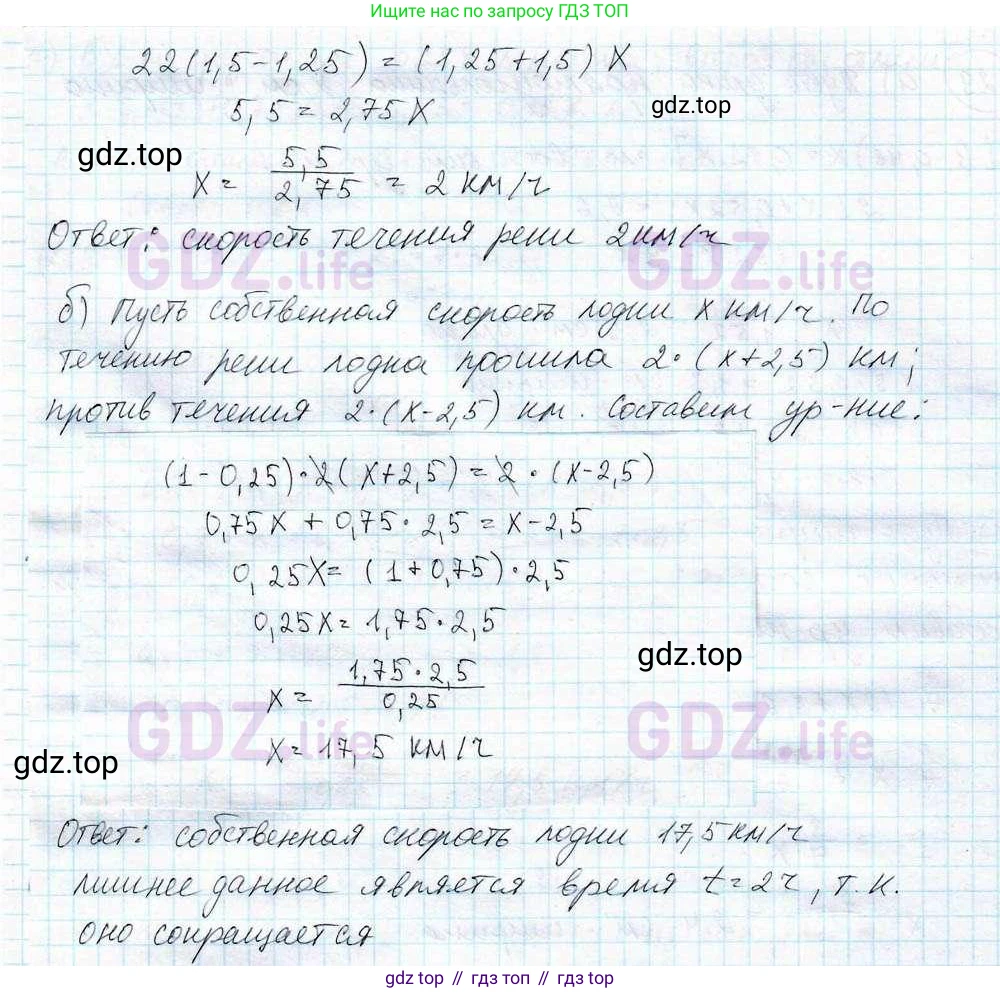 Ищите ещё решения по запросу ГДЗ ТОП
22(1,5-1,25)=(1,25+1,5)X
5,5=2,75X
gdz.top
gdz.top
X= 5,5/2,75 = 2 км/ч
Ответ: скорость течения реки 2км/ч
GDZ.life GDZ.life
б) Пусть собственная скорость лодки x км/ч. По
течению реки лодка прошла 2·(x+2,5) км;
против течения 2·(x-2,5) км. Составим ур-ние:
(1-0,25)·2(x+2,5)=2·(x-2,5)
0,75x+0,75·2,5=x-2,5
0,25x=(1+0,75)·2,5
0,25x=1,75·2,5
gdz.top
x= 1,75·2,5/0,25
GDZ.life GDZ.life
x=17,5 км/ч
gdz.top
Ответ: собственная скорость лодки 17,5км/ч
лишнее данное является время t=2ч, т.к.
оно сокращается
gdz top // гдз топ // gdz top